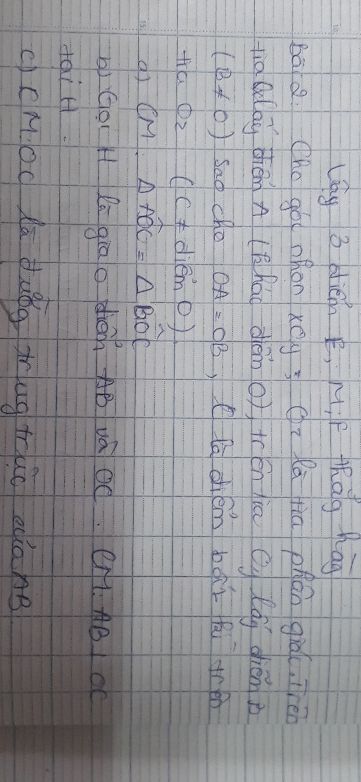 Vậy 3 điểm E, M, F thẳng hàng
Bài 2. Cho góc nhọn xOy; Oz là tia phân giác. Trên
tia Ox lấy điểm A (khác điểm O), trên tia Oy lấy điểm B
(B ≠ O) sao cho OA = OB, C là điểm bất kì trên
tia Oz (C ≠ điểm O).
a) CM: Δ AOC = Δ BOC
b) Gọi H là giao điểm AB và OC. CM: AB ⊥ OC
tại H.
c) CM: OC là đường trung trực của AB